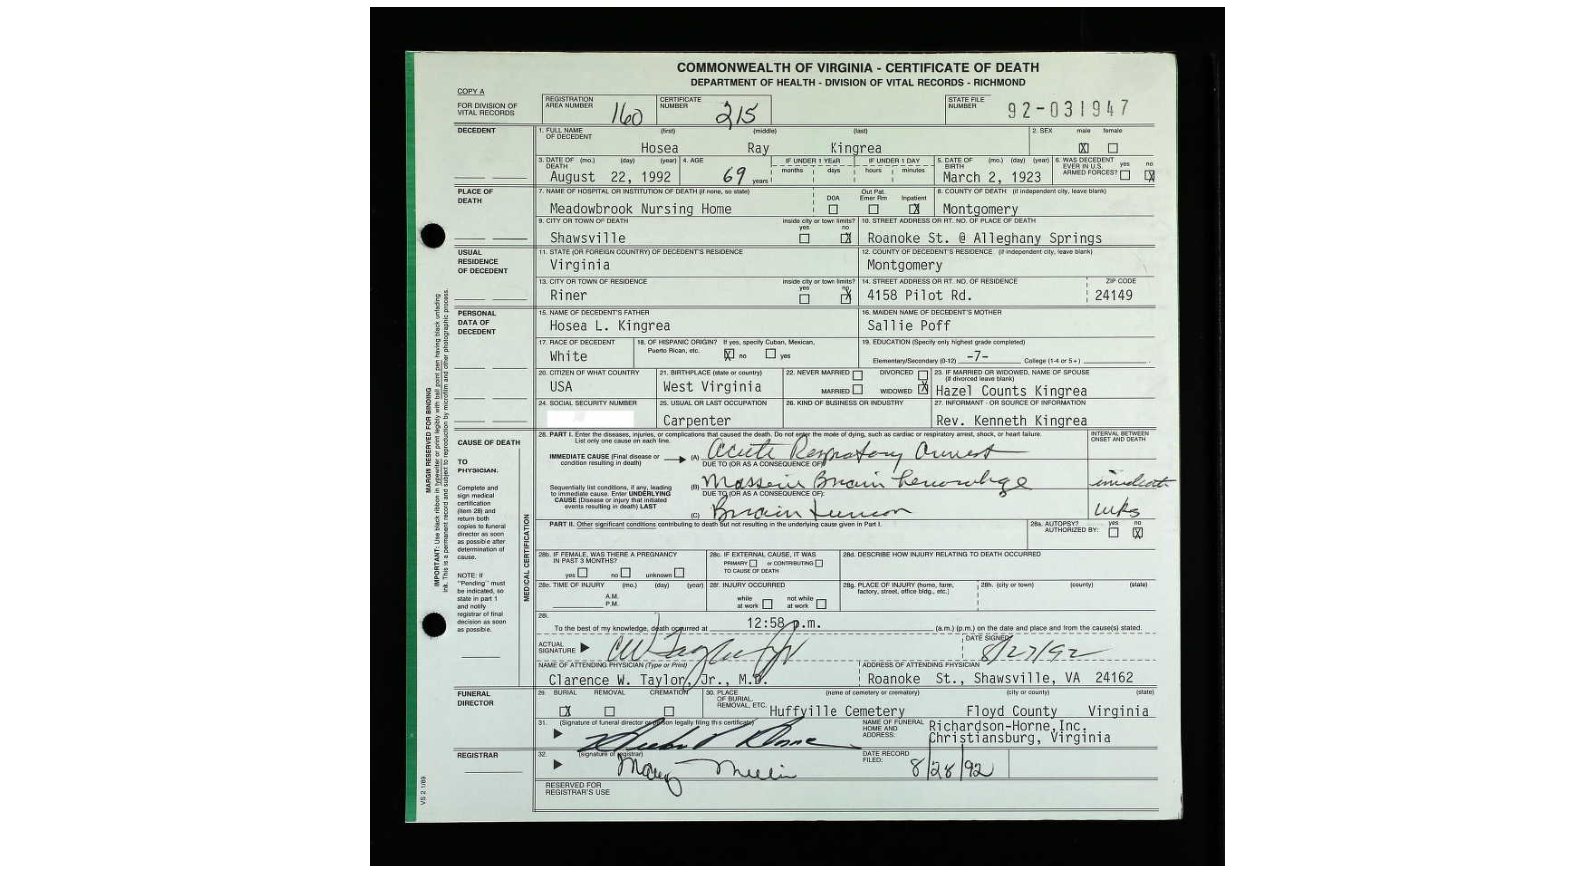 COMMONWEALTH OF VIRGINIA - CERTIFICATE OF DEATH
DEPARTMENT OF HEALTH - DIVISION OF VITAL RECORDS - RICHMOND
COPY A
FOR DIVISION OF VITAL RECORDS
REGISTRATION AREA NUMBER 160
CERTIFICATE NUMBER 215
STATE FILE NUMBER 92-031947
DECEDENT
1. FULL NAME OF DECEDENT (first) (middle) (last)
Hosea Ray Kingrea
2. SEX male female
X
3. DATE OF DEATH (mo.) (day) (year)
August 22, 1992
4. AGE 69 years
IF UNDER 1 YEAR months days
IF UNDER 1 DAY hours minutes
5. DATE OF BIRTH (mo.) (day) (year)
March 2, 1923
6. WAS DECEDENT EVER IN U.S. ARMED FORCES? yes no
X
PLACE OF DEATH
7. NAME OF HOSPITAL OR INSTITUTION OF DEATH (if none, so state)
Meadowbrook Nursing Home
DOA Out Pat. Emer Rm Inpatient
X
8. COUNTY OF DEATH (if independent city, leave blank)
Montgomery
9. CITY OR TOWN OF DEATH
Shawsville
inside city or town limits? yes no
X
10. STREET ADDRESS OR RT. NO. OF PLACE OF DEATH
Roanoke St. @ Alleghany Springs
USUAL RESIDENCE OF DECEDENT
11. STATE (OR FOREIGN COUNTRY) OF DECEDENT'S RESIDENCE
Virginia
12. COUNTY OF DECEDENT'S RESIDENCE (if independent city, leave blank)
Montgomery
13. CITY OR TOWN OF RESIDENCE
Riner
inside city or town limits? yes no
X
14. STREET ADDRESS OR RT. NO. OF RESIDENCE
4158 Pilot Rd.
ZIP CODE
24149
PERSONAL DATA OF DECEDENT
15. NAME OF DECEDENT'S FATHER
Hosea L. Kingrea
16. MAIDEN NAME OF DECEDENT'S MOTHER
Sallie Poff
17. RACE OF DECEDENT
White
18. OF HISPANIC ORIGIN? If yes, specify Cuban, Mexican, Puerto Rican, etc.
X no yes
19. EDUCATION (Specify only highest grade completed)
Elementary/Secondary (0-12) -7- College (1-4 or 5+)
20. CITIZEN OF WHAT COUNTRY
USA
21. BIRTHPLACE (state or country)
West Virginia
22. NEVER MARRIED DIVORCED
MARRIED WIDOWED X
23. IF MARRIED OR WIDOWED, NAME OF SPOUSE (if divorced leave blank)
Hazel Counts Kingrea
24. SOCIAL SECURITY NUMBER
25. USUAL OR LAST OCCUPATION
Carpenter
26. KIND OF BUSINESS OR INDUSTRY
27. INFORMANT - OR SOURCE OF INFORMATION
Rev. Kenneth Kingrea
CAUSE OF DEATH
TO PHYSICIAN:
Complete and sign medical certification (item 28) and return both copies to funeral director as soon as possible after determination of cause.
NOTE: If "Pending" must be indicated, so state in part 1 and notify registrar of final decision as soon as possible.
MEDICAL CERTIFICATION
28. PART I. Enter the diseases, injuries, or complications that caused the death. Do not enter the mode of dying, such as cardiac or respiratory arrest, shock, or heart failure.
List only one cause on each line.
INTERVAL BETWEEN ONSET AND DEATH
IMMEDIATE CAUSE (Final disease or condition resulting in death)
(A) Acute Respiratory Arrest
DUE TO (OR AS A CONSEQUENCE OF)
Sequentially list conditions, if any, leading to immediate cause. Enter UNDERLYING CAUSE (Disease or injury that initiated events resulting in death) LAST
(B) Massive Brain hemorrhage
DUE TO (OR AS A CONSEQUENCE OF):
(C) Brain tumor
wks
PART II. Other significant conditions contributing to death but not resulting in the underlying cause given in Part I.
28a. AUTOPSY? yes no
AUTHORIZED BY: X
28b. IF FEMALE, WAS THERE A PREGNANCY IN PAST 3 MONTHS?
yes no unknown
28c. IF EXTERNAL CAUSE, IT WAS
PRIMARY or CONTRIBUTING
TO CAUSE OF DEATH
28d. DESCRIBE HOW INJURY RELATING TO DEATH OCCURRED
28e. TIME OF INJURY (mo.) (day) (year)
A.M.
P.M.
28f. INJURY OCCURRED
while at work not while at work
28g. PLACE OF INJURY (home, farm, factory, street, office bldg., etc.)
28h. (city or town) (county) (state)
28i.
To the best of my knowledge, death occurred at 12:58 p.m. (a.m.) (p.m.) on the date and place and from the cause(s) stated.
ACTUAL SIGNATURE CW Taylor Jr
DATE SIGNED: 8/27/92
NAME OF ATTENDING PHYSICIAN (Type or Print)
Clarence W. Taylor, Jr., M.D.
ADDRESS OF ATTENDING PHYSICIAN
Roanoke St., Shawsville, VA 24162
FUNERAL DIRECTOR
29. BURIAL REMOVAL CREMATION
X
30. PLACE OF BURIAL, REMOVAL, ETC. (name of cemetery or crematory) (city or county) (state)
Huffville Cemetery Floyd County Virginia
31. (Signature of funeral director or person legally filing this certificate)
NAME OF FUNERAL HOME AND ADDRESS:
Richardson-Horne,Inc.
Christiansburg, Virginia
REGISTRAR
32. (signature of registrar)
DATE RECORD FILED: 8/28/92
RESERVED FOR REGISTRAR'S USE
MARGIN RESERVED FOR BINDING
IMPORTANT: Use black ribbon in typewriter or print legibly with ball point pen having black unfading ink. This is a permanent record and subject to reproduction by microfilm and other photographic process.
VS 2 1/89